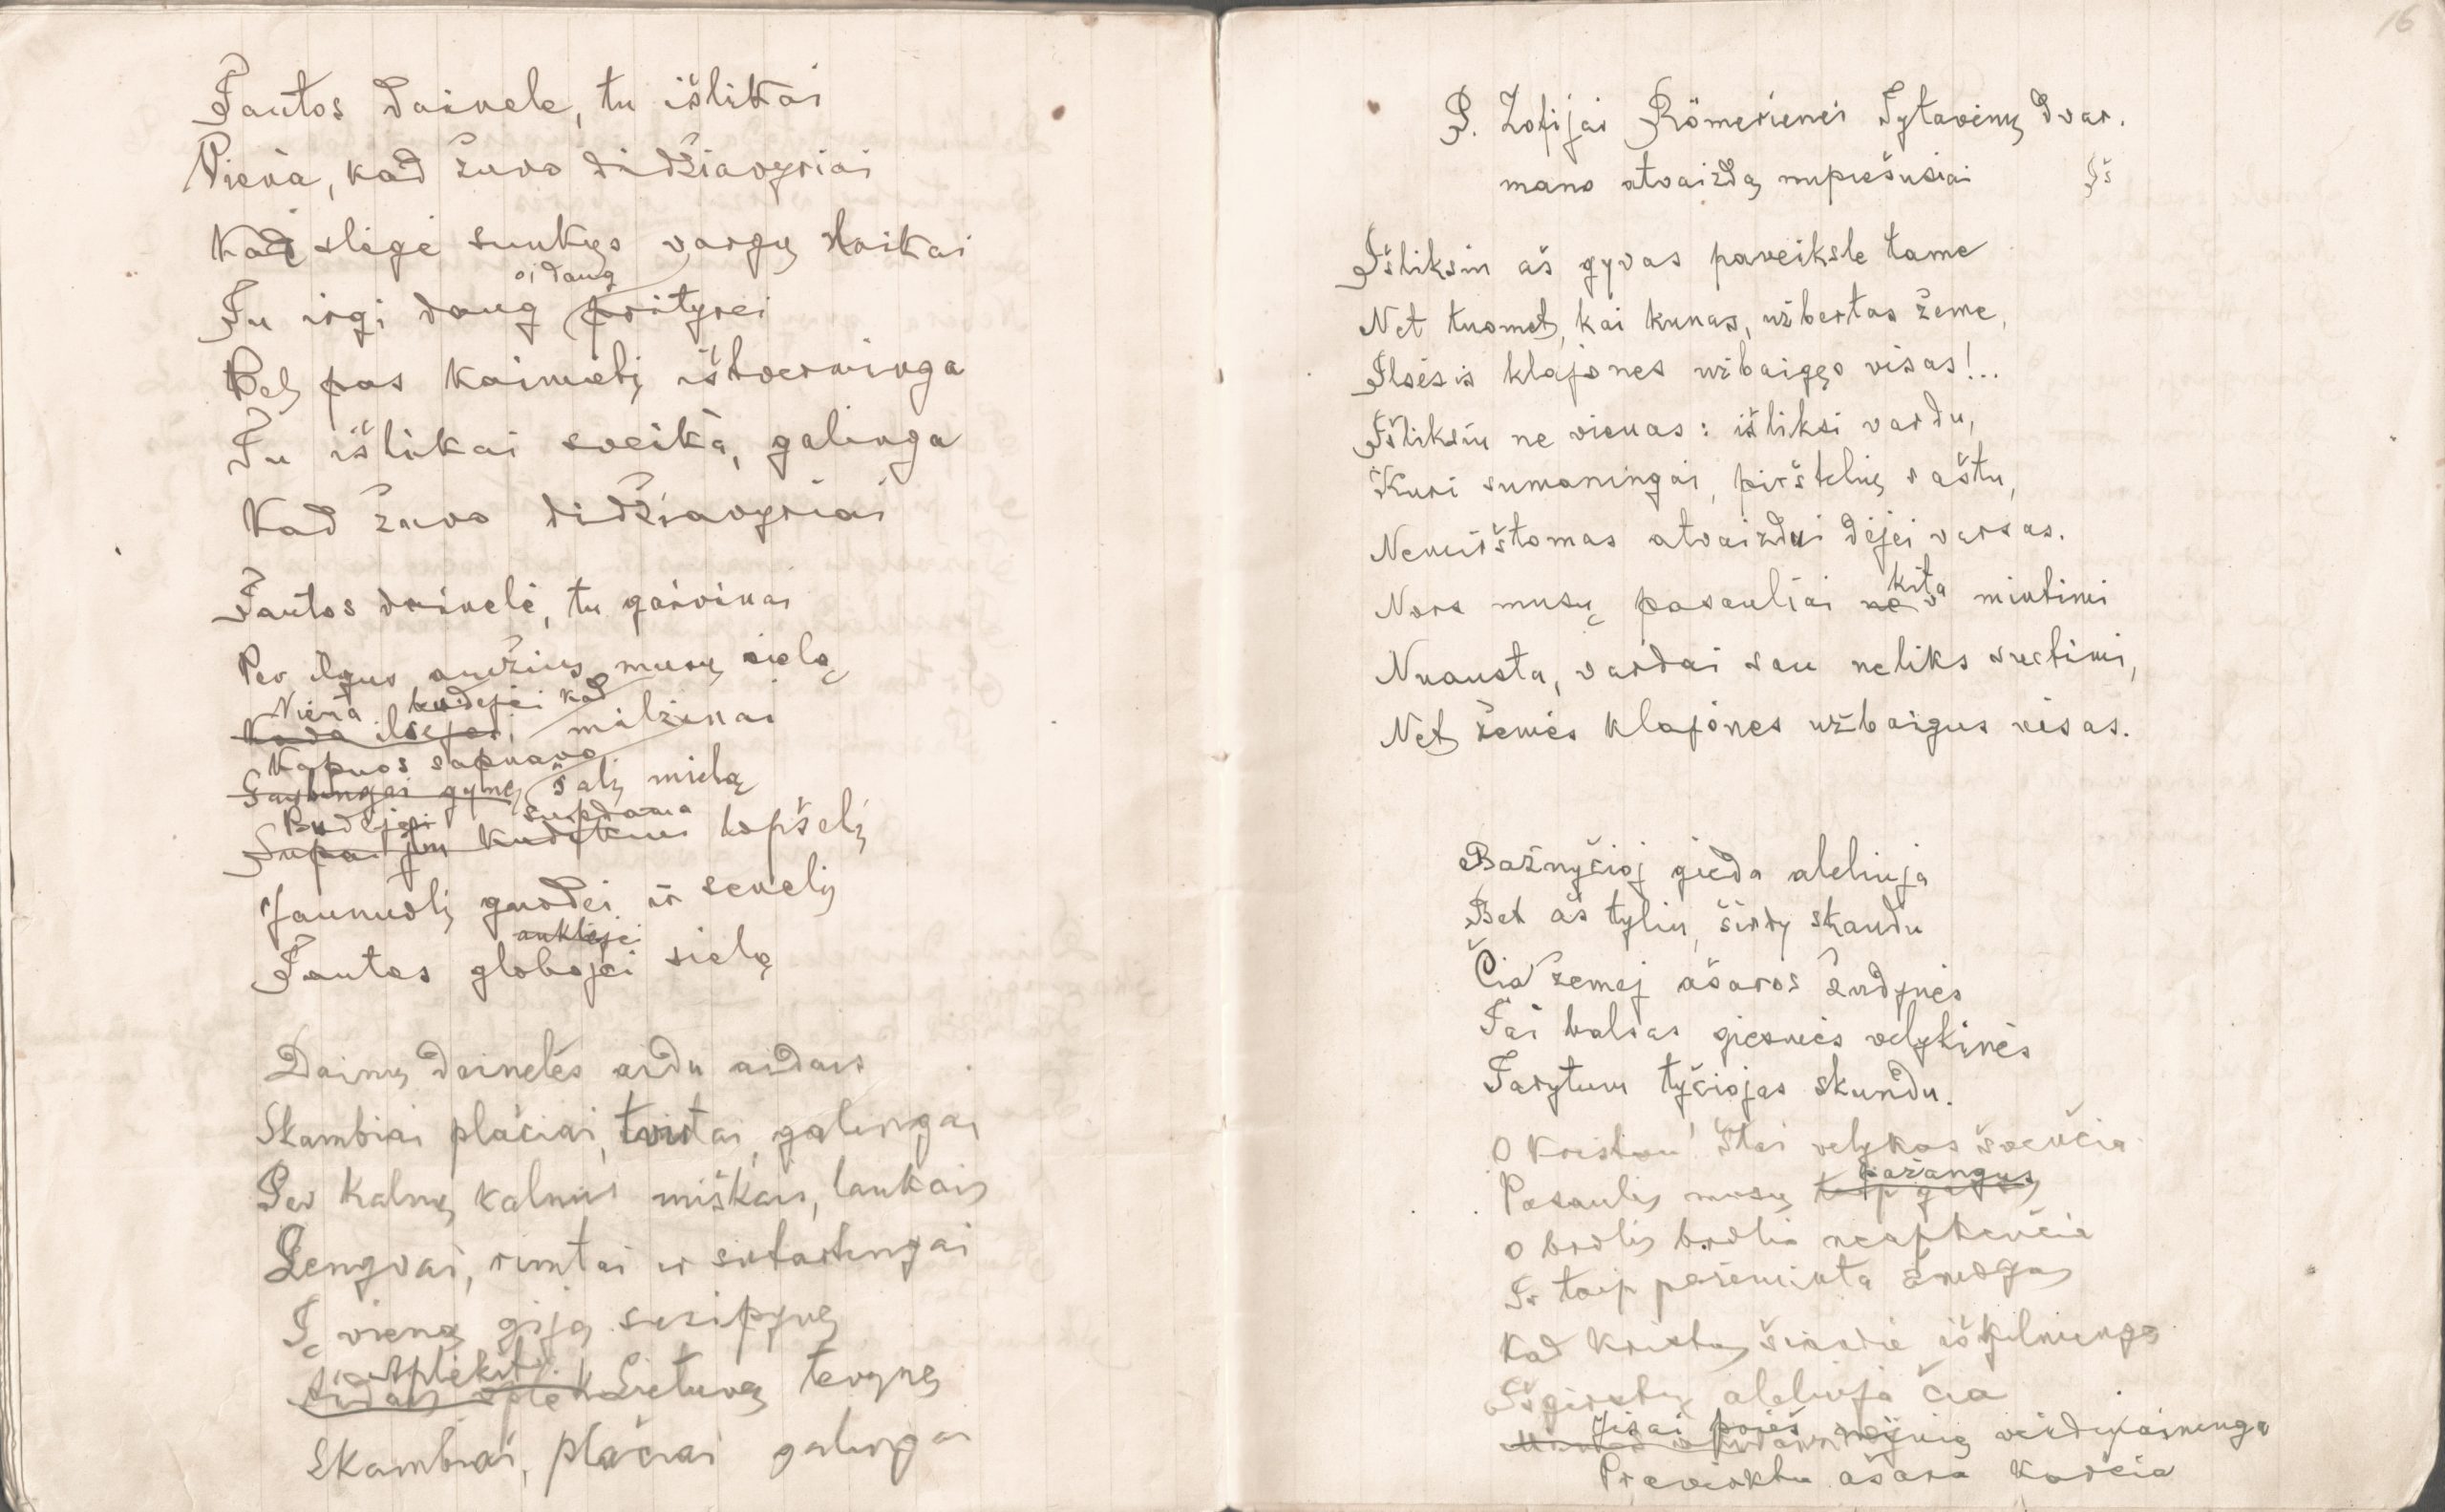 Tautos dainele, tu išlikai
Viena, kad žuvo didžiavyriai
Kad slėgė sunkųs vargų laikai
oi daug
Tu irgi daug prityrei
Bet pas kaimetį ištverminga
Tu išlikai sveika, galinga
Kad žuvo didžiavyriai
Tautos dainelė, tu gaivinai
Per ilgus amžius musų sielą
Viena budėjei kad
Kada ilsėjos milžinai
Kapuos sapnavo
Garbingai gynę šalį mielą
Budėjei supdama
Supai tu kudikiui lopšelį
Jaunuolį guodei ir senelį
auklėjei
Tautos globojei sielą
Dainų dainelės aidu aidais
Skambiai plačiai, tvirtai, galingai
Per kalnų kalnus miškais, laukais
Lengvai, rimtai ir sutartingai
Į vieną giją susipynę
Aplėkit
Aidais Lietuvą tėvynę
Skambiai, plačiai galingai
16
P. Zofijai Römerienei Tytavėnų dvar.
mano atvaizdą nupiešusiai
Išliksiu aš gyvas paveiksle tame
Net tuomet, kai kunas, užbertas žeme,
Ilsėsis klajones užbaigęs visas!..
Išliksiu ne vienas: išliksi vardu,
Kuri sumaningai, pirštelių raštu,
Nemirštomas atvaizdui dėjei varsas.
kita
Nors musų pasauliai ne mintimi
Nuausta, vardai sau neliks svetimi,
Net žemės klajones užbaigus visas.
Bažnyčioj gieda aleliuja
Bet aš tyliu, širdy skaudu
Čia žemėj ašaros žudynės
Tai balsas giesmės velykinės
Tarytum tyčiojas skundu.
O Kristau! Štai velykas švenčia
pažangus
Pasaulis musų
O brolis brolio neapkenčia
Ir taip pažeminta žmogus
Kad Kristus širdie iškilminga
Išgirstų aleliuja čia
Jisai veidmainingą
Pravirktu ašara karčia